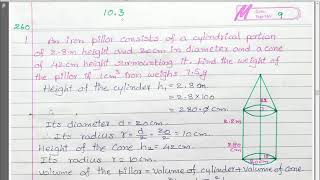 10.3
9
260
1 An iron pillar consists of a cylindrical portion
of 2.8m height and 20cm in diameter and a cone
of 42cm height surmounting it. Find the weight of
the pillar if 1cm³ iron weighs 7.5g
Height of the cylinder h₁ = 2.8m
= 2.8×100
= 280.0cm
Its diameter d = 20cm
∴ Its radius r = d/2 = 20/2 = 10cm.
Height of the Cone h₂ = 42cm.
Its radius r = 10cm.
volume of the pillar = volume of cylinder + volume of cone